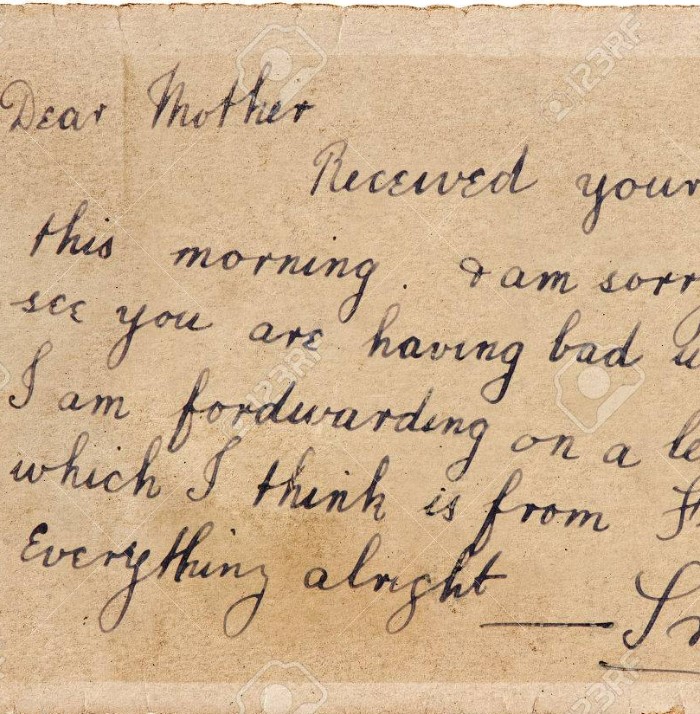 Dear Mother
Received your
this morning. & am sorr
see you are having bad
I am fordwarding on a le
which I think is from
Everything alright —
123RF